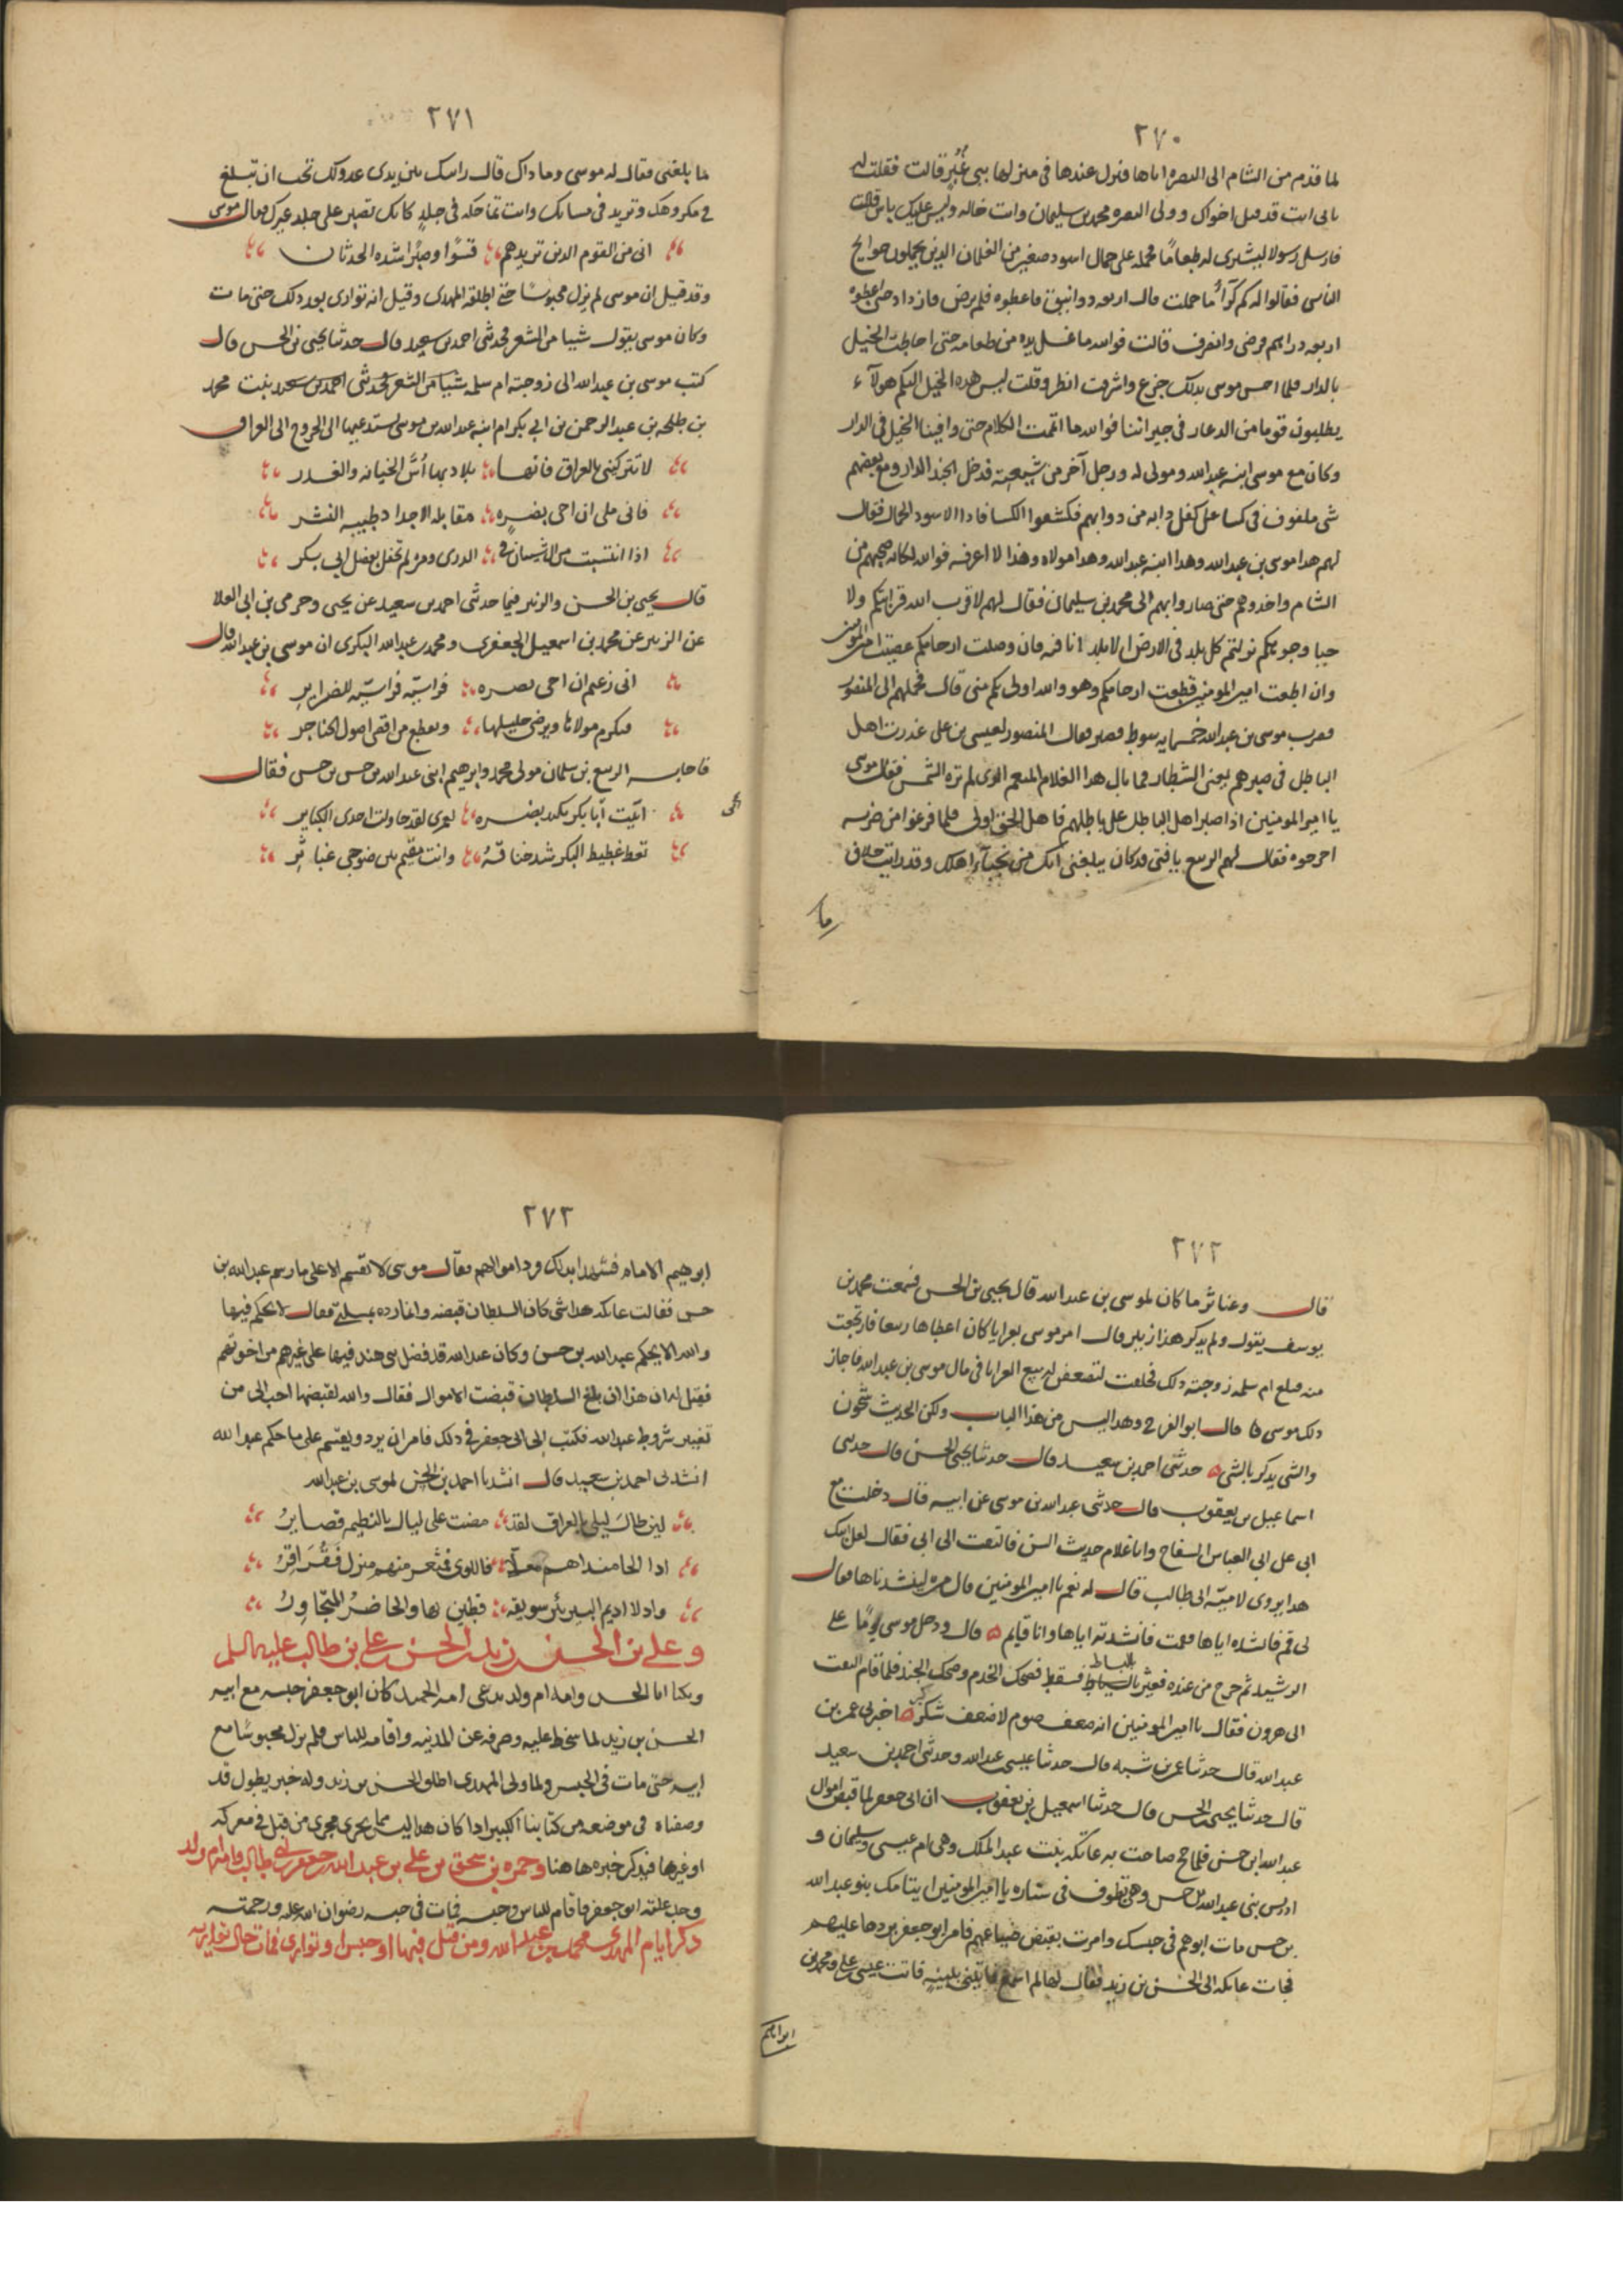 ٢٧٠
لما قدم من الشام الى البصره اتاها فنزل عندها فى منزلها ببنى غُبَر قالت فقلت له
بابى انت قد قتل اخواك وولى البصره محمد بن سليمان وانت خاله وليس عليك باس قالت
فارسل رسولا ليشترى له طعامًا فحمله على حمال اسود صغير من الغلمان الذين يحملون حوايج
الناس فقالوا له كم كرآء ما حملت قال اربعه دوانيق فاعطوه فلم يرض فازداد حتى اعطوه
اربعه دراهم فرضى وانصرف قالت فوالله ما غسل يده من طعامه حتى احاطت الخيل
بالدار فلما احس موسى بذلك جزع واشرفت انظر وقلت ليس هذه الخيل اليكم هولآء
يطلبون قوما من الدعار فى جيراننا فوالله ما اتممت الكلام حتى وافينا الخيل فى الدار
وكان مع موسى ابنه عبد الله ومولى له ورجل آخر من شيعته فدخل الجند الدار ومع بعضهم
شى ملفوف فى كسا على كفل دابه من دوابهم فكشفوا الكسا فاذا الاسود الحمال فقال
لهم هذا موسى بن عبد الله وهذا ابنه عبد الله وهذا مولاه وهذا لا اعرفه فوالله لكانه صحبهم من
الشام واخذوهم حتى صاروا بهم الى محمد بن سليمان فقال لهم لا قرب الله قرابتكم ولا
حيا وجوهكم نزلتم كل بلد فى الارض الا بلد انا فيه فان وصلت ارحامكم عصيت امير المومنين
وان اطعت امير المومنين قطعت ارحامكم وهو والله اولى بكم منى قال فحملهم الى المنصور
فضرب موسى بن عبد الله خمسمايه سوط فصبر فقال المنصور لعيسى بن على عذرت اهل
الباطل فى صبرهم يعنى الشطار فما بال هذا الغلام المنعم الذى لم تره الشمس فقال موسى
يا امير المومنين اذا صبر اهل الباطل على باطلهم فاهل الحق اولى فلما فرغوا من ضربه
اخرجوه فقال لهم الربيع يا فتى قد كان يبلغنى انك من نجبآء اهلك وقد رايت خلاف
ما
٢٧١
ما بلغنى فقال له موسى وما ذاك قال راسك بين يدى عدوك تحب ان تبلغ
فى مكروهك وتزيد فى مسائك وانت تماحكه فى جلدٍ كانك تصبر على جلد غيرك فقال موسى
انى من القوم الذين تزيدهم قسوًا وصبرًا شده الحدثان
وقد قيل ان موسى لم يزل محبوسًا حتى اطلقه المهدى وقيل انه توارى بعد ذلك حتى مات
وكان موسى يقول شيا من الشعر فحدثنى احمد بن سعيد قال حدثنا يحيى بن الحسن قال
كتب موسى بن عبد الله الى زوجته ام سلمه شيا من الشعر فحدثنى احمد بن سعيد بنت محمد
بن طلحه بن عبد الرحمن بن ابى بكر ام ابنه عبد الله بن موسى يستدعيها الى الخروج الى العراق
لا تتركينى بالعراق فانها بلاد بها اُسّ الخيانه والغدر
فانى ملى ان اجى بضرهٍ مقابله الاجداد طيبه النشر
اذا انتسبت من ال شيبان فى الذرى ومره لم تحفل بفضل ابى بكر
قال يحيى بن الحسن والزبير فيما حدثنى احمد بن سعيد عن يحيى وحرمى بن ابى العلا
عن الزبير عن محمد بن اسمعيل الجعفرى ومحمد بن عبد الله البكرى ان موسى بن عبد الله قال
انى زعيم ان اجى بضره فراسيّه فراسيّه للضراير
فتكرم مولاها ويرضى حليلها وتقطع من اقصى اصول الحناجر
فاجابه الربيع بن سلمان مولى محمد وابرهيم ابنى عبد الله بن حسن بن حسن فقال
ابنت ابا بكر تكيد بضره لعمرى لقد حاولت احدى الكباير
تغط غطيط البكر شد خناقهُ وانت مقيم بين ضوجى عباثر
٢٧٢
قال وعباثر ما كان لموسى بن عبد الله قال يحيى بن الحسن فسمعت محمد بن
يوسف يقول ولم يذكر هذا زبير قال امر موسى بعرايا كان اعطاها ربيعا فارتجعت
منه فبلغ ام سلمه زوجته ذلك فحلفت لتضعفن لربيع العرايا فى مال موسى بن عبد الله فاجاز
ذلك موسى قال ابو الفرج وهذا ليس من هذا الباب ولكن الحديث شجون
والشى يذكر بالشى حدثنى احمد بن سعيد قال حدثنا يحيى الحسن قال حدثنى
اسماعيل بن يعقوب قال حدثنى عبد الله بن موسى عن ابيه قال دخلت مع
ابى على ابى العباس السفاح وانا غلام حديث السن فالتفت الى ابى فقال لعل ابنك
هذا يروى لاميّه ابى طالب قال له نعم يا امير المومنين قال مره لينشدناها فقال
لى قم فانشده اياها فقمت فانشدته اياها وانا قايم قال ودخل موسى يومًا على
الرشيد ثم خرج من عنده فعثر بالبساط فسقط فضحك الخدم وضحك الجند فلما قام التفت
بالبساط
الى هرون فقال يا امير المومنين انه ضعف صوم لا ضعف سُكْر اخبرنى عمر بن
عبد الله قال حدثنا عمر بن شبه قال حدثنا عيسى عبد الله وحدثنى احمد بن سعيد
قال حدثنا يحيى الحسن قال حدثنا اسمعيل بن يعقوب ان ابى جعفر لما قبض اموال
عبد الله ابن حسن فلما حج صاحت به عاتكه بنت عبد الملك وهى ام عيسى وسليمان و
ادريس بنى عبد الله بن حسن وهى تطوف فى ستاره يا امير المومنين ايتامك بنو عبد الله
بن حسن مات ابوهم فى حبسك وامرت بقبض ضياعهم فامر ابو جعفر بردها عليهم
فجات عاتكه الى الحسن بن زيد فقال لها لم اسمع فاتينى ببينهٍ فاتت عيسى على ومحمد بن
ابراهيم
٢٧٣
ابرهيم الامام فشهدا بذلك ورد اموالهم فقال موسى لا تقسم الا على ما رسم عبد الله بن
حسن فقالت عاتكه هذا شى كان السلطان قبضه وانما رده بمسلتى فقال لا يحكم فيها
والله الا بحكم عبد الله بن حسن وكان عبد الله قد فضل بنى هند فيها على غيرهم من اخوتهم
فقيل له ان هذا ان بلغ السلطان قبضت الاموال فقال والله لقبضها احب الى من
تغيير شروط عبد الله فكتب الى ابى جعفر فى ذلك فامر ان يرد ويقسم على ما حكم عبد الله
انشدنى احمد بن سعيد قال انشدنا احمد بن الحسن لموسى بن عبد الله
لين طال ليلى بالعراق لقد مضت على ليال بالنظيم قصايرُ
اذا الحى منداهم معلاه فاللوى فثعر منهم منزل فقُراقرُ
واذ لا اريم البير بئر سويقه قطين بها والحاضرُ المتجاوِرُ
وعلى بن الحسن زيد الحسن على بن طالب عليه السلم
ويكنا ابا الحسن وامه ام ولد تدعى امه الحميد كان ابو جعفر حبسه مع ابيه
الحسن بن زيد لما سخط عليه وصرفه عن المدينه واقامه للناس فلم يزل محبوسًا مع
ابيه حتى مات فى الحبس ولما ولى المهدى اطلق الحسن بن زيد وله خبر يطول قد
وصفناه فى موضعه من كتابنا الكبير اذا كان هذا ليس مما يجرى مجرى من قتل فى معركه
او غيرها فيذكر خبره هاهنا وحمزه بن سحق بن على بن عبد الله جعفر بن ابى طالب وامه ام ولد
وجد عليه ابو جعفر فاقام للناس وحبسه فمات فى حبسه رضوان الله عليه ورحمته
ذكر ايام المهدى محمد بن عبد الله ومن قتل فيها او حبس او توارى فمات حال تواريه